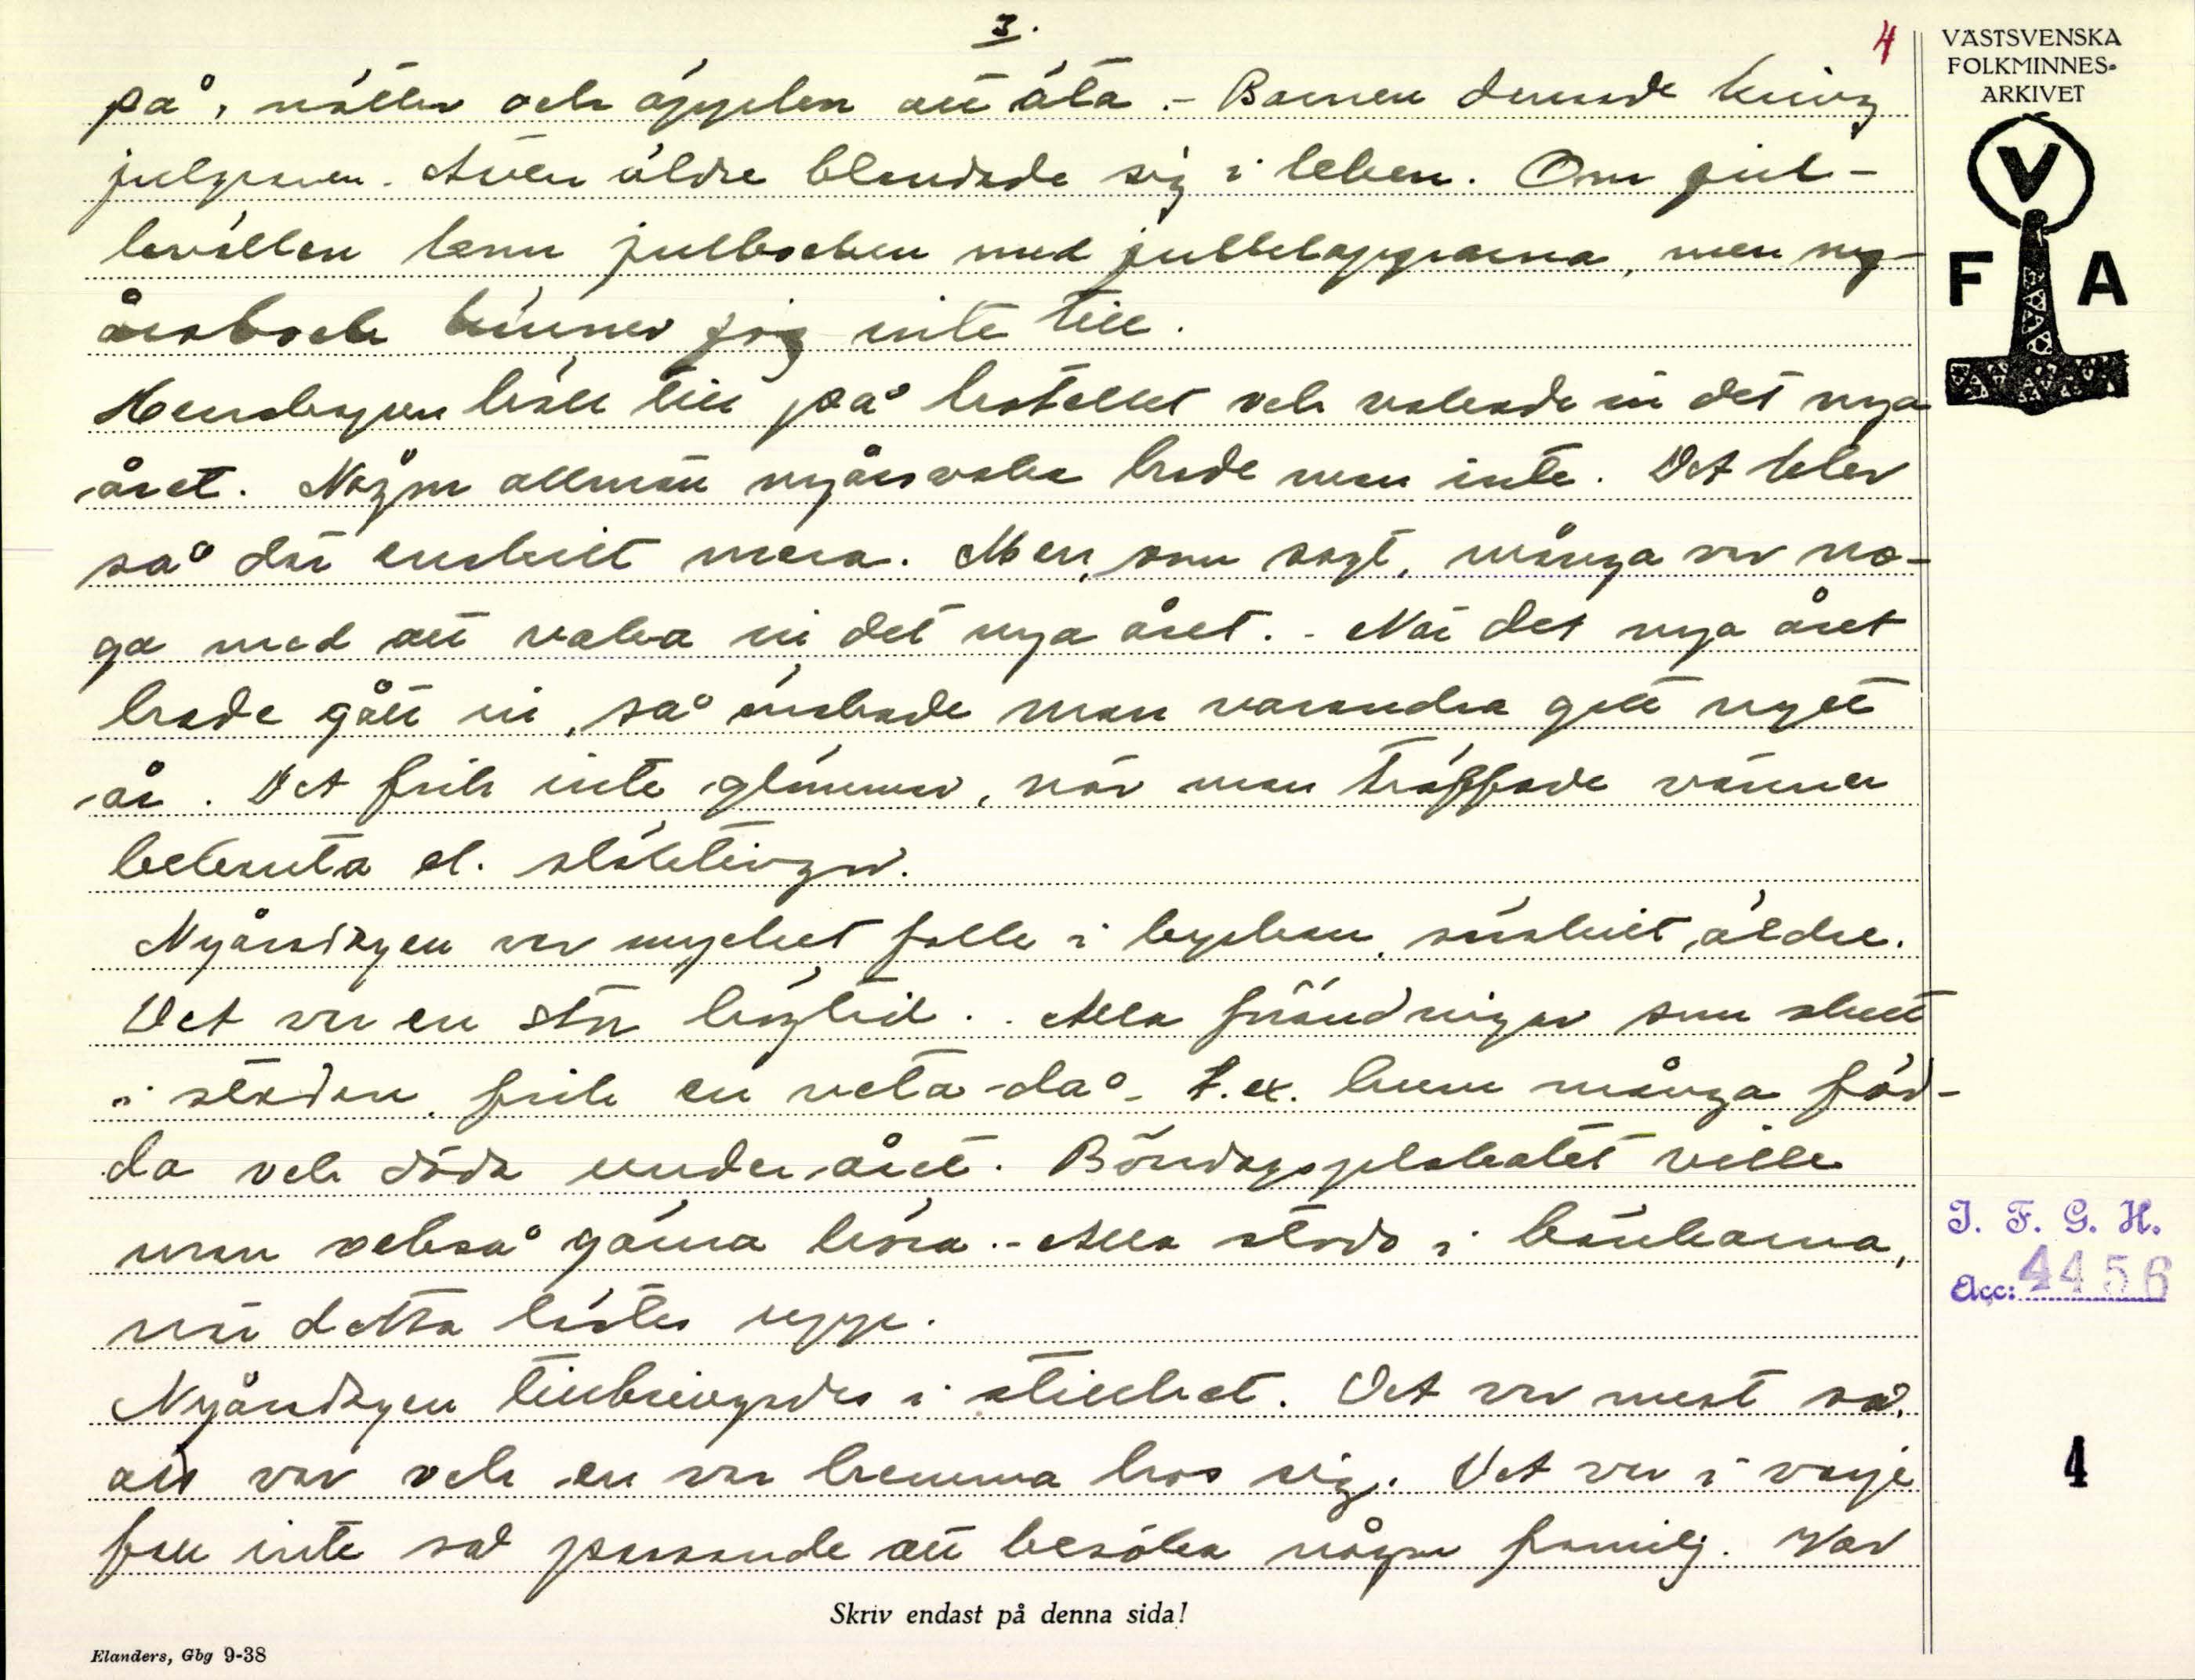 3.
4
VÄSTSVENSKA
FOLKMINNES-
ARKIVET
V
F A
på, nötter och äpplen att äta. - Barnen dansade kring
julgranen. Även äldre blandade sig i leken. Om jul-
kvällen kom julbocken med julklapparna, men ny-
årsbock känner jag inte till.
Herrskapen höll till på hotellet och vakade in det nya
året. Någon allmän nyårsvaka hade man inte. Det blev
så där enskilt mera. Men, som sagt, många var no-
ga med att vaka in det nya året. - När det nya året
hade gått in, så önskade man varandra gott nytt
år. Det fick inte glömmas, när man träffade vänner
bekanta el. släktingar.
Nyårsdagen var mycket folk i kyrkan, särskilt äldre.
Det var en stor högtid. - Alla förändringar som skett
i staden, fick en veta då - t.ex. hur många föd-
da och döda under året. Böndagsplakatet ville
man också gärna höra. - Alla stodo i bänkarna,
när detta lästes upp.
Nyårsdagen tillbringades i stillhet. Det var mest så,
att var och en var hemma hos sig. Det var i varje
fall inte så passande att besöka någon familj. Var
Skriv endast på denna sida!
Elanders, Gbg 9-38
I. F. G. H.
Acc: 4456
4